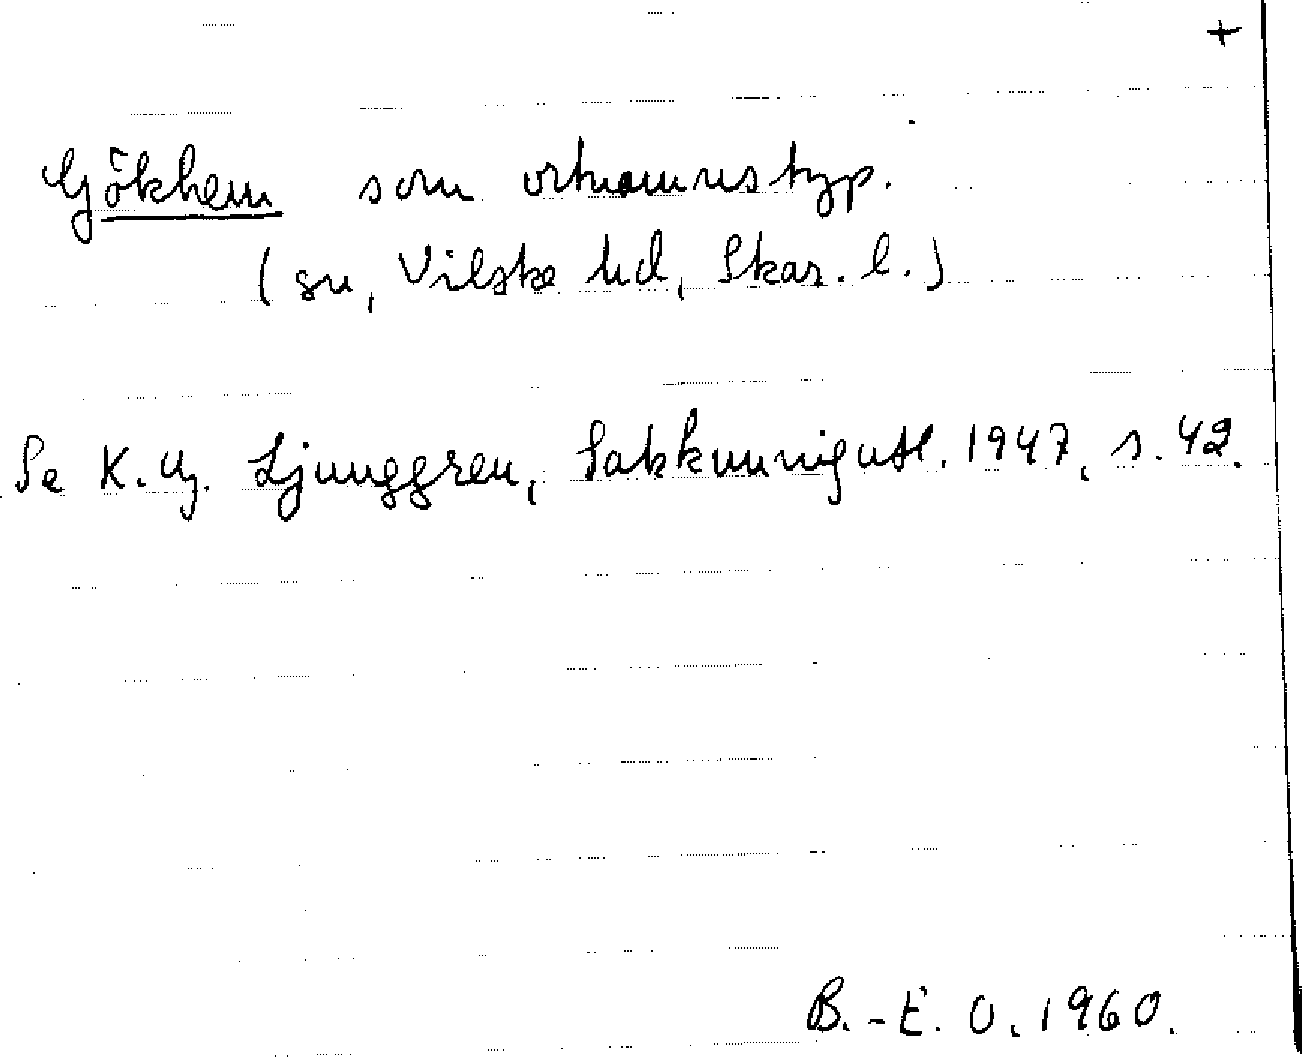 +
Gökhem som ortnamnstyp.
(sn, Vilske hd, Skar. l.)
Se K.G. Ljunggren, Sakkunnigutl. 1947, s. 42.
B.-E. O. 1960.